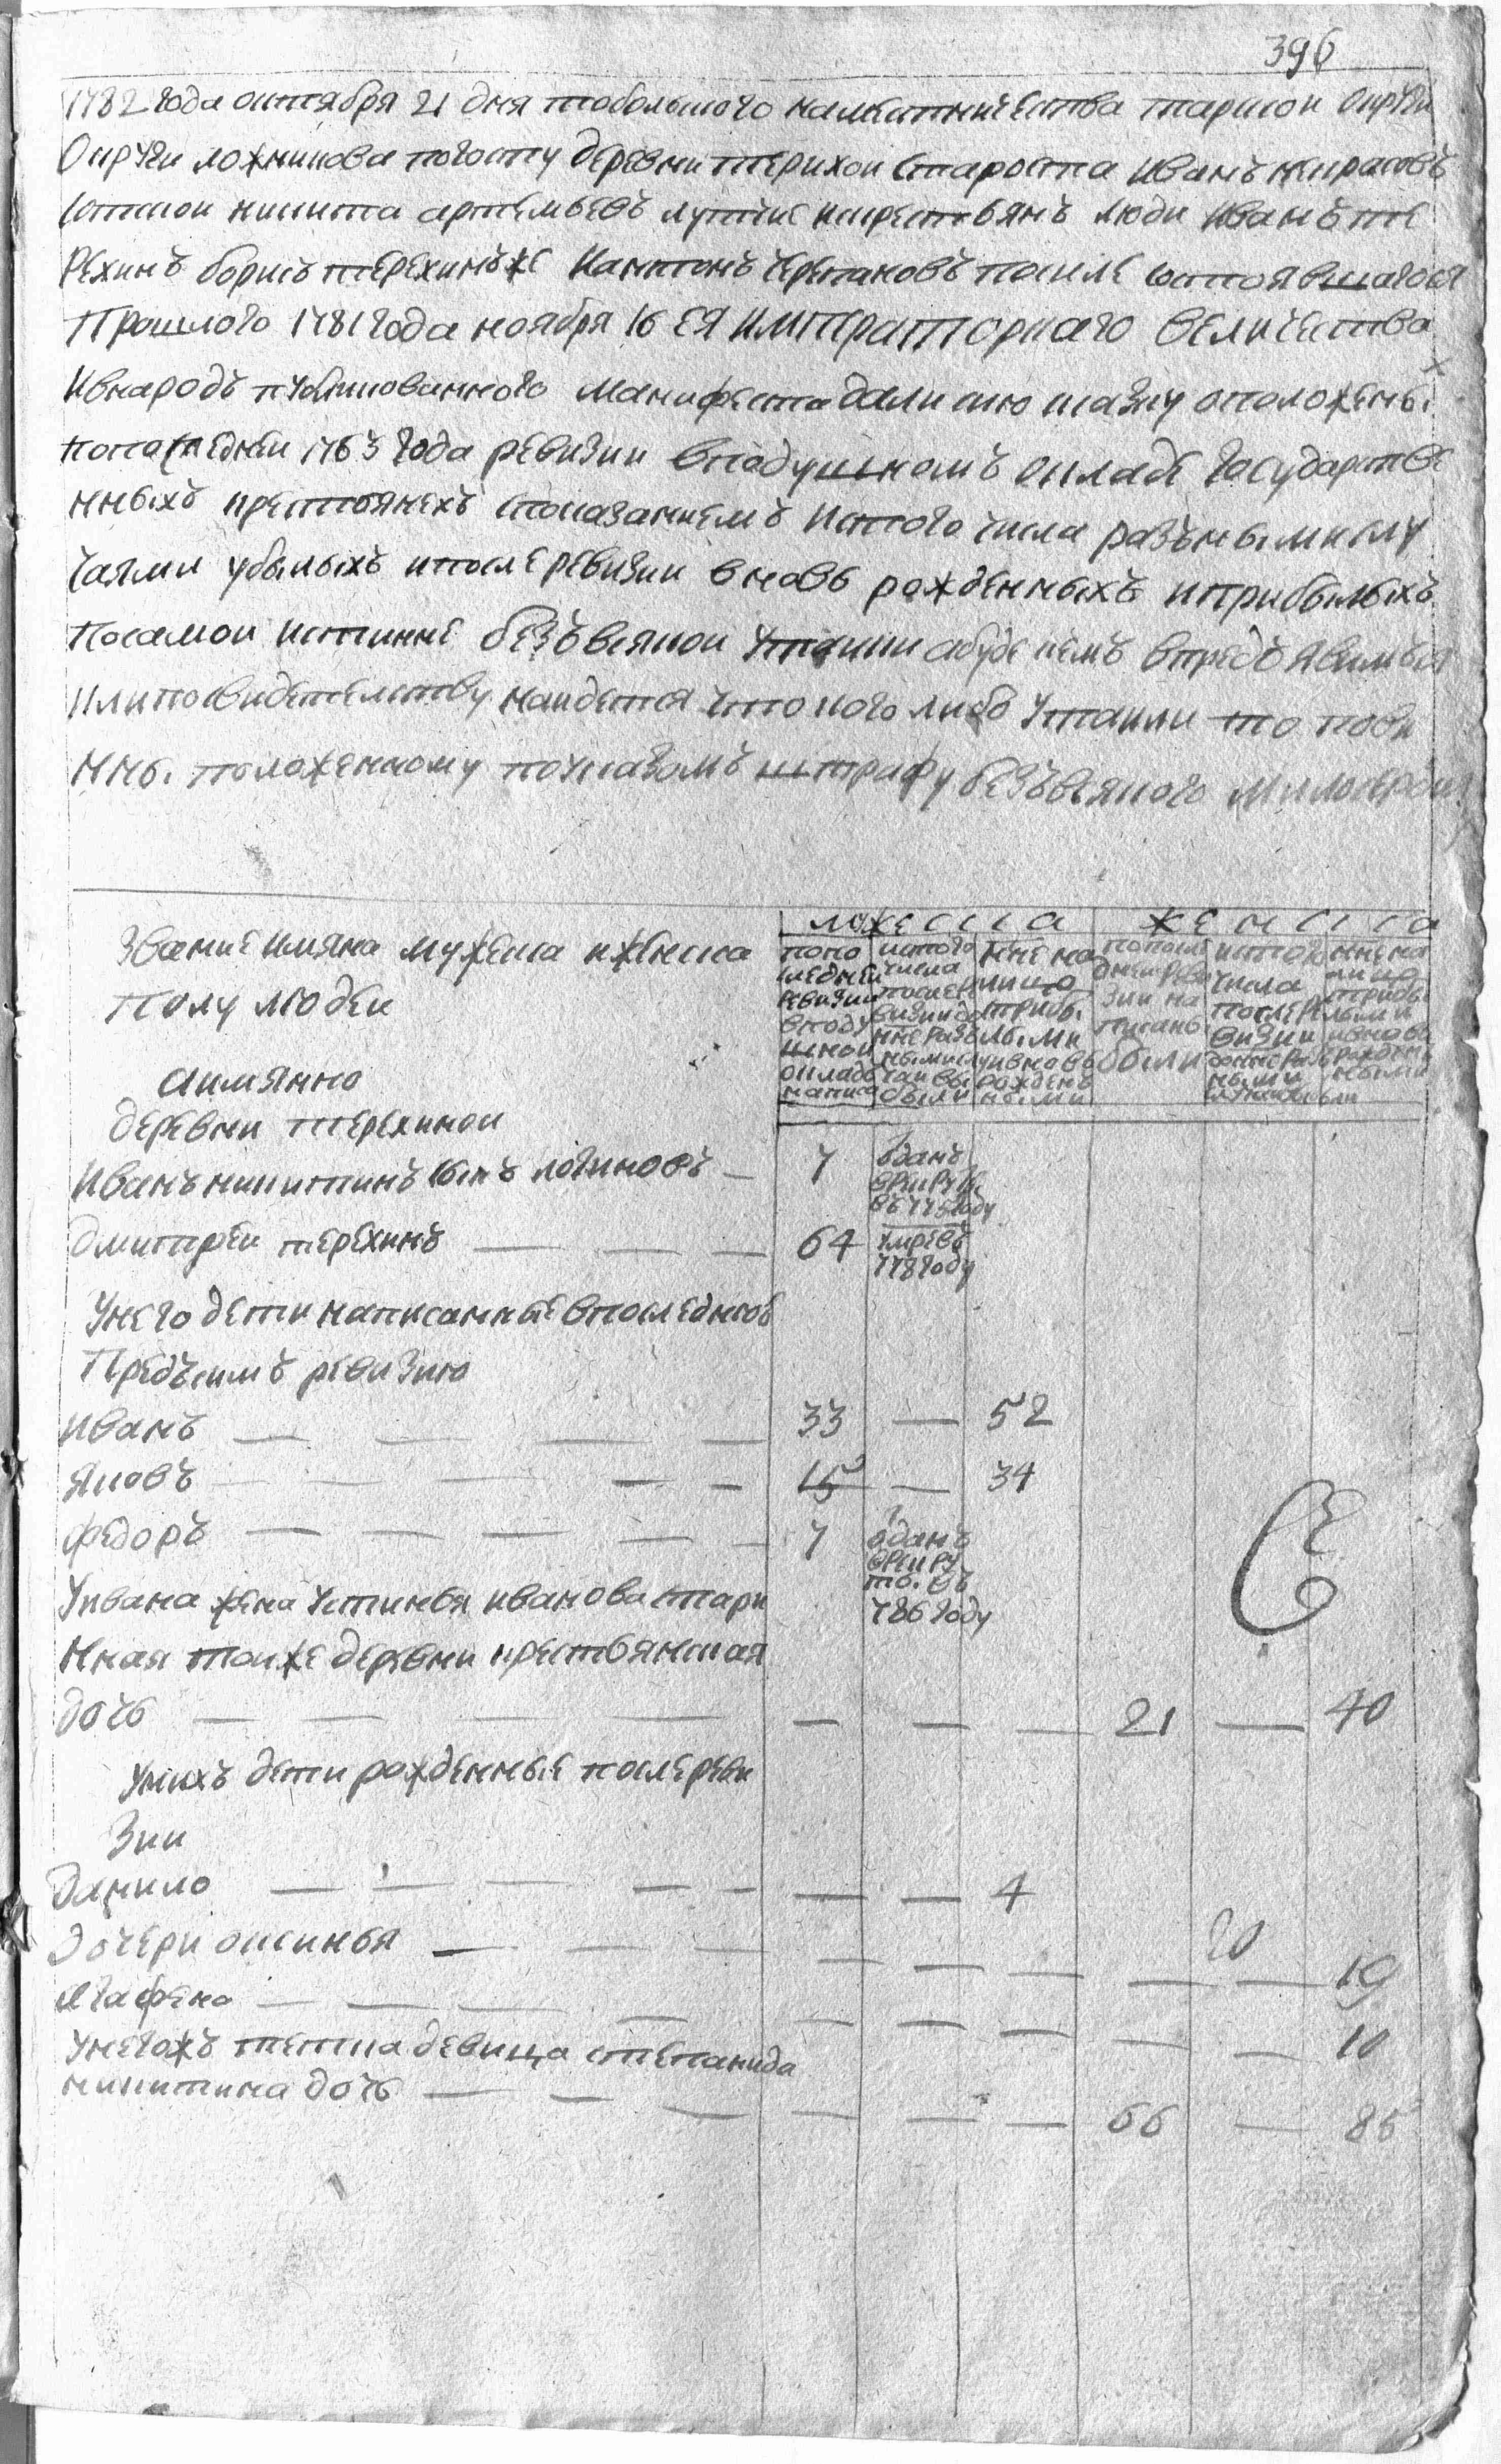 396
1782 года октября 21 дня тобольшого намѣстничества тарской округи
Округи ложникова погосту деревни терихои староста иванъ некрасовъ
сотскои никита артемьевъ лутчие искрестьянъ люди иванъ те
рехинъ борисъ терехинъже иантонъ черепановъ после состоявшагося
прошлого 1781 года ноября 16 ея императорскаго величества
ивнародъ публикованного манифеста дали сию скаску оположены
попоследнеи 1763 года ревизии вподушномъ окладе государстве
нныхъ крестьянехъ споказаниемъ истого числа разъными слу
чаями убылыхъ ипосле ревизии вновь рожденныхъ иприбылыхъ
посамои истинне безъвсякои утаики абуде кемъ впредь явимъся
илипосвидетелству наидется что кого либо утаили то пови
нны положенному поуказомъ штрафу безъвсякого милосердия
звание имяна мужеска иженска
полу людеи
аимянно
мужеска
женска
попо
следней
ревизии
вподу
шнои
окладъ
написа
истого
числа
послере
визии до
ныне разъ
ными слу
чаи вы
были
ныне на
лицо
прибы
лыми
ивновь
рожден
ными
попосле
дней реви
зии на
писаны
были
истого
числа
после ре
визии
доныне разъ
ными
случаи выбыли
ныне на
лицо
прибы
лыми
ивновь
рожден
ными
деревни терехинои
иванъ никитинъ сынъ логиновъ — 7 вданъ врекруты въ 775 году
дмитреи терехинъ — — — 64 умревъ 778 году
унего дети написанные впоследнюю
предъсимъ ревизию
иванъ — — — — 33 — 52
яковъ — — — — — 15 — 34
федоръ — — — — — 7 вданъ врекруты въ 786 году
уивана жена устинья иванова стари
нная тоиже деревни крестьянская
дочь — — — — — — — 21 — 40
унихъ дети рожденные после реви
зии
данило — — — — — — — 4
20
дочери оксинья — — — — — — — — 19
агафья — — — — — — — — — 10
унегожъ тетка девица степанида
никитина дочь — — — — — — 66 — 85